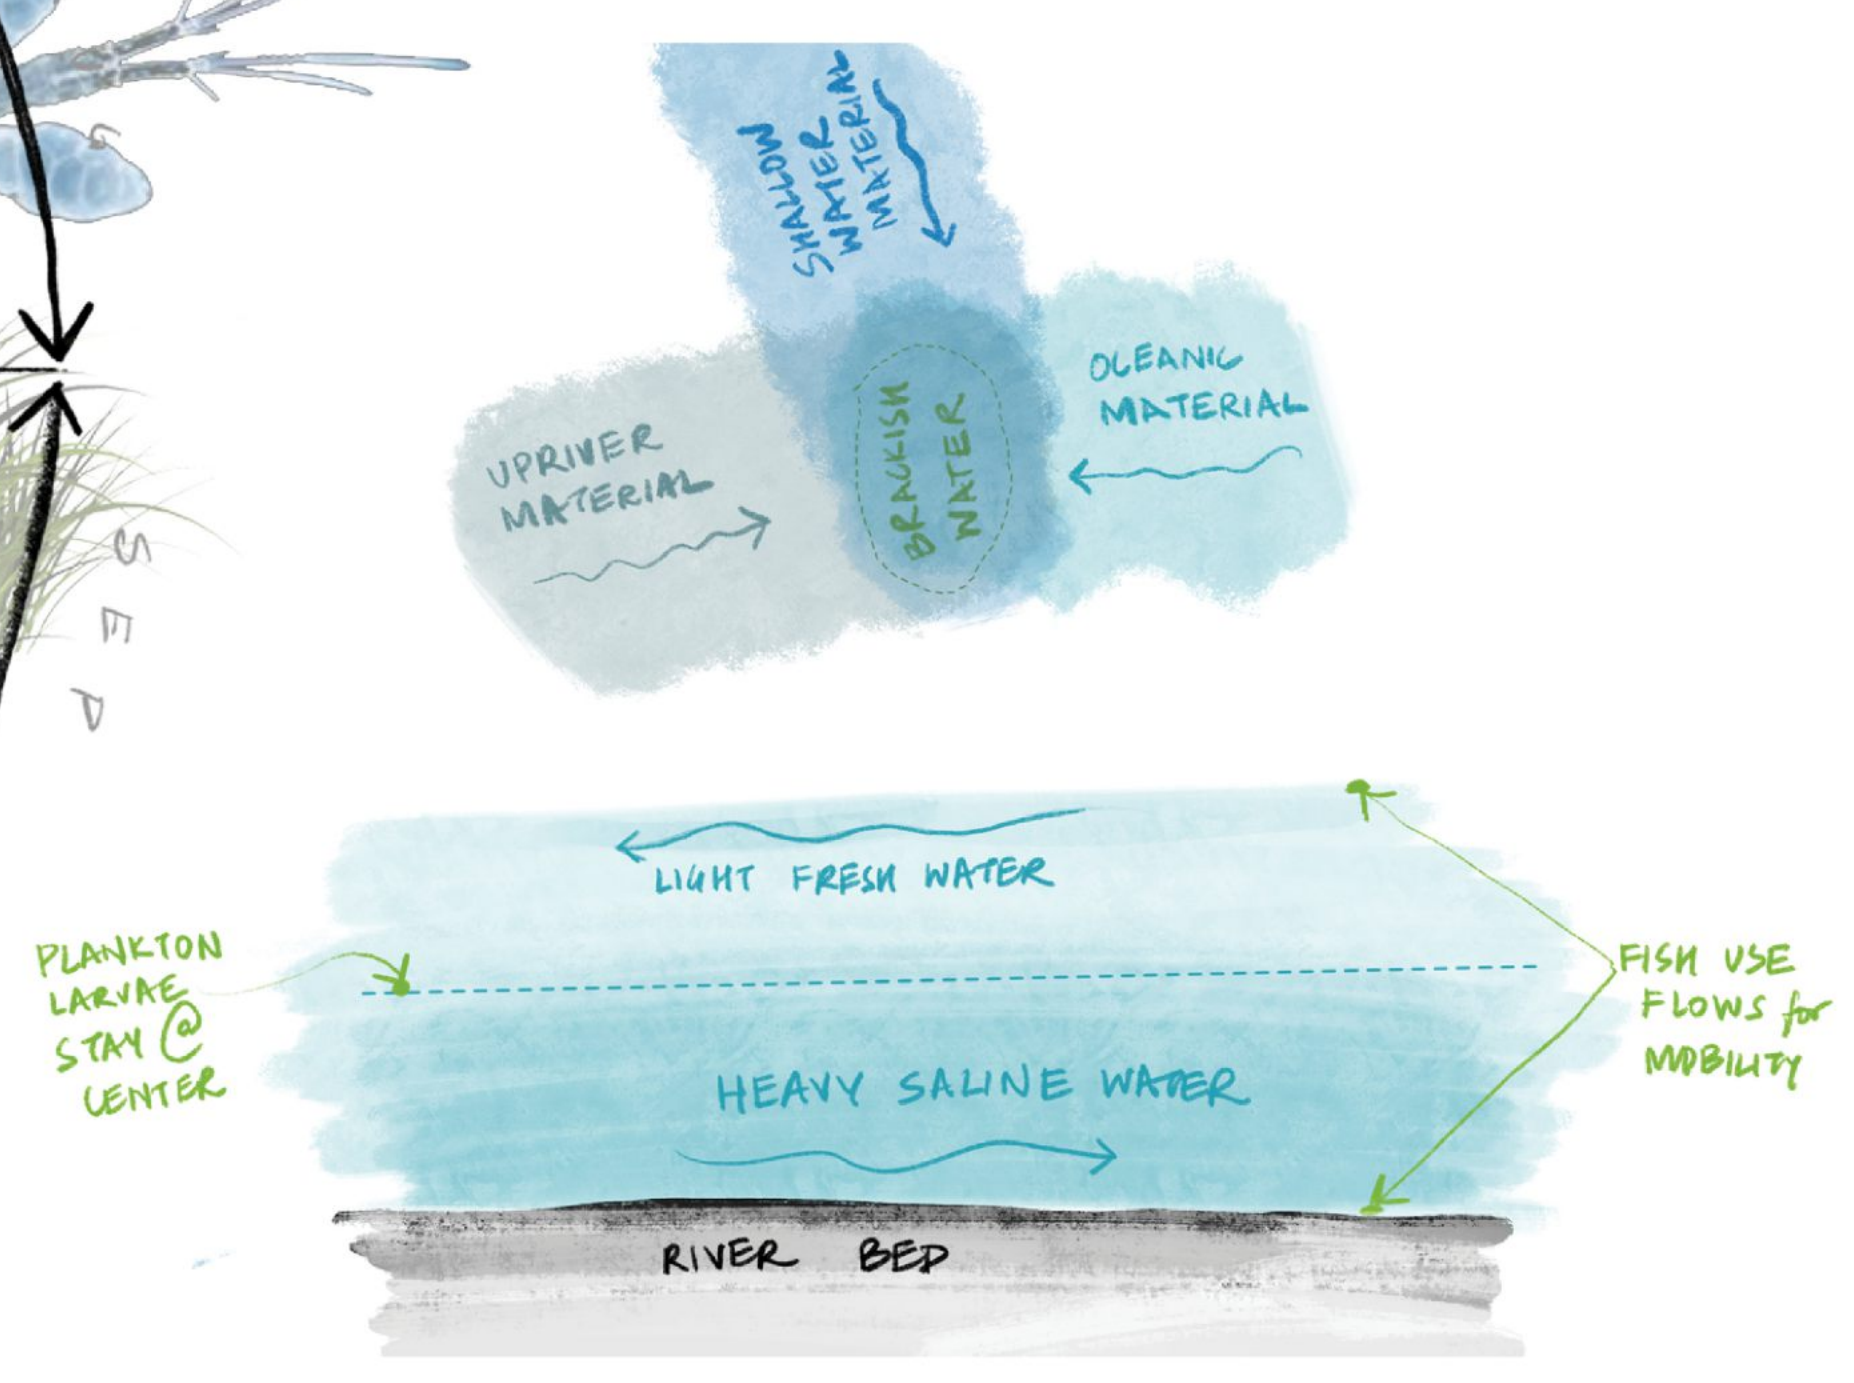 SHALLOW
WATER
MATERIAL
OCEANIC
MATERIAL
BRACKISH
WATER
UPRIVER
MATERIAL
S
E
P
LIGHT FRESH WATER
PLANKTON
LARVAE
STAY @
CENTER
FISH USE
FLOWS for
MOBILITY
HEAVY SALINE WATER
RIVER BED